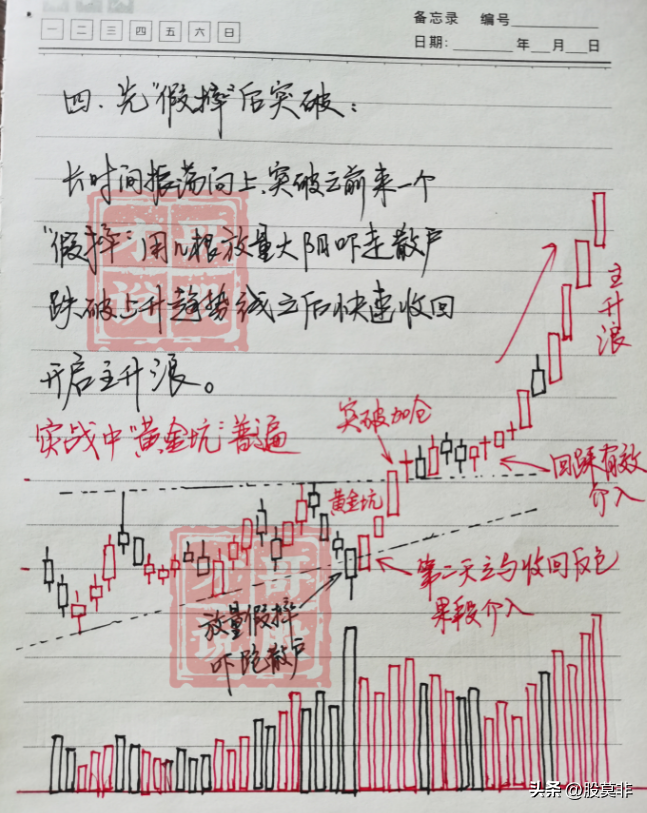 备忘录 编号
一 二 三 四 五 六 日
日期: 年 月 日
四、先“假摔”后突破:
长时间振荡向上、突破之前来一个
“假摔”用几根放量大阴吓走散户
跌破上升趋势线之后快速收回
开启主升浪。
实战中“黄金坑”普遍
主升浪
突破加仓
回踩有效
介入
黄金坑
第二天立马收回反包
果段介入
放量假摔
吓跑散户
头条 @股莫非